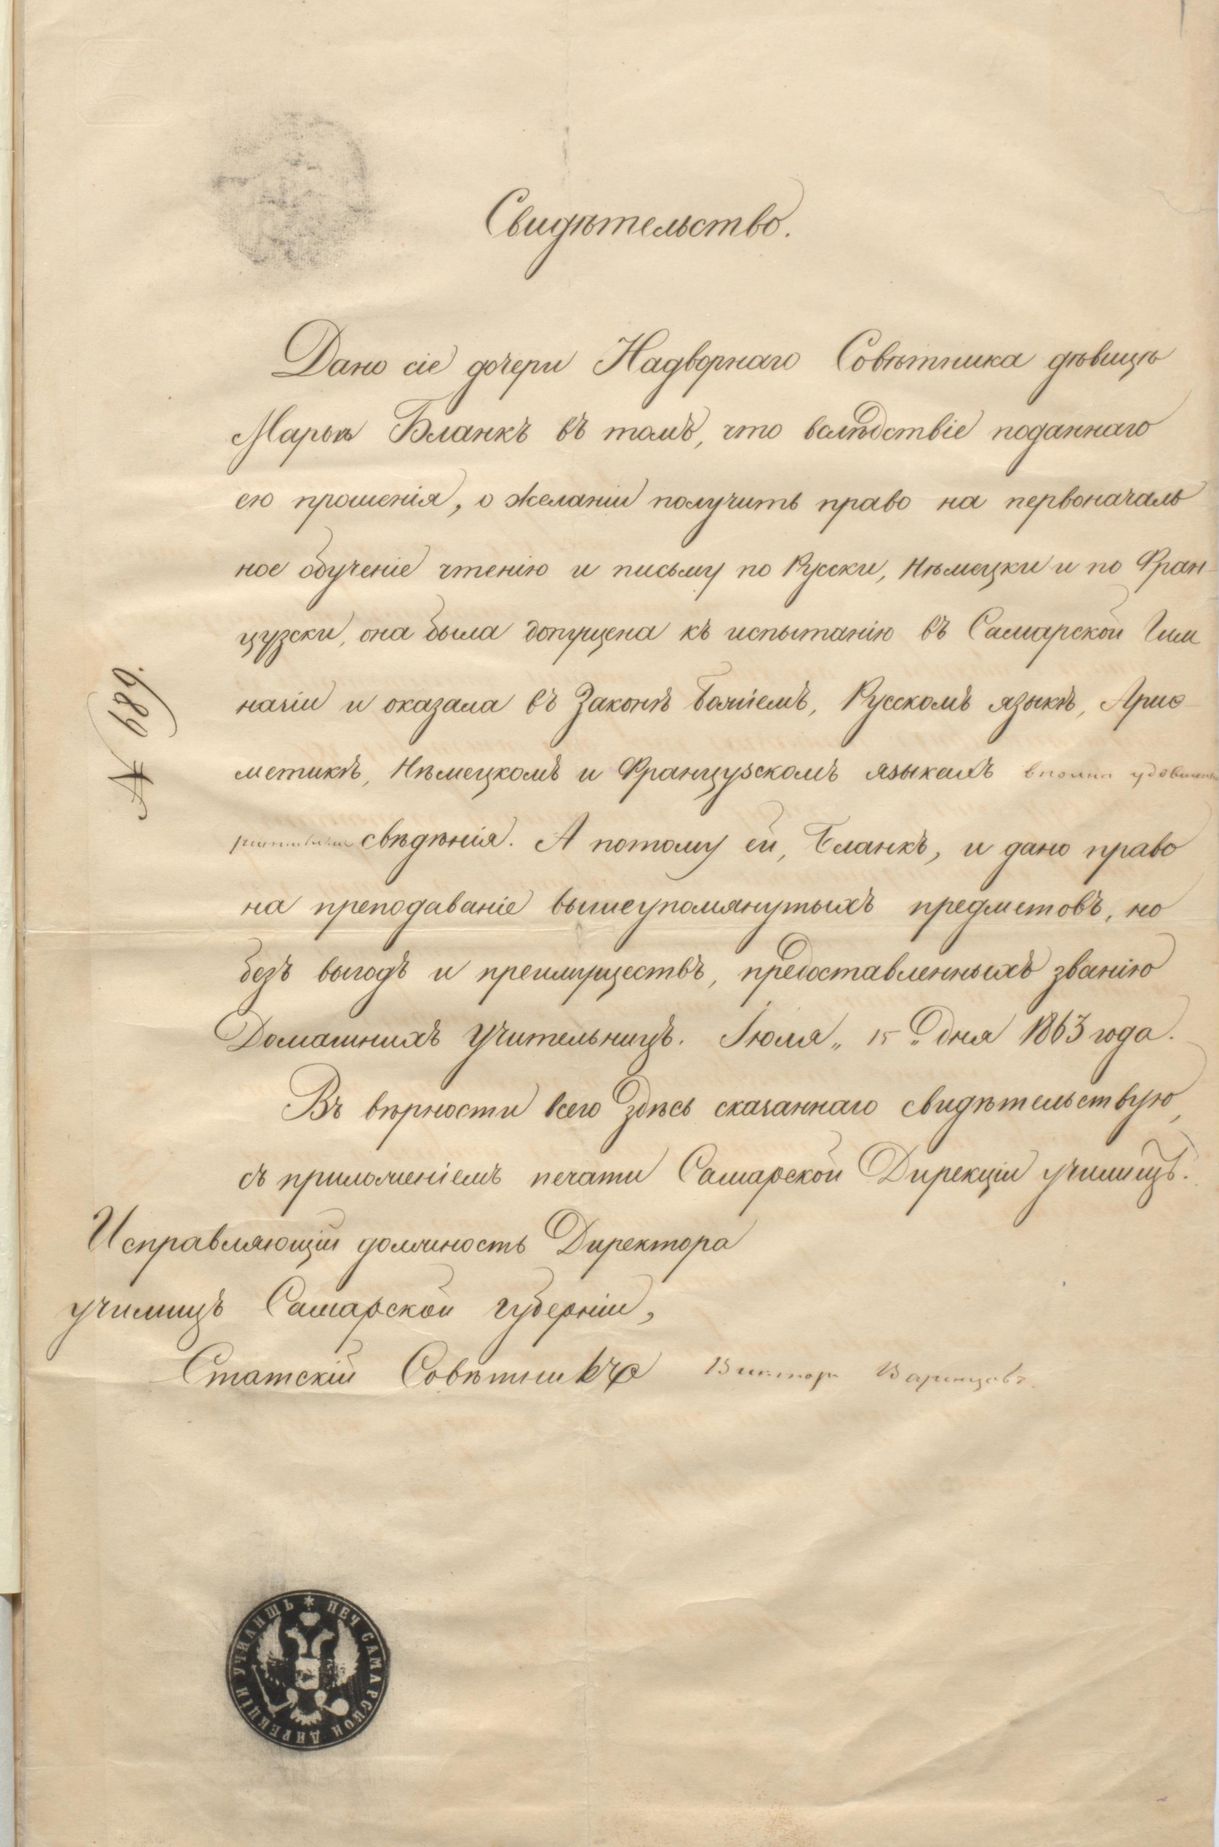 Свидѣтельство.
Дано сіе дочери Надворнаго Совѣтника дѣвицѣ
Марьѣ Бланкъ въ томъ, что вслѣдствіе поданнаго
ею прошенія, о желаніи получить право на первоначаль
ное обученіе чтенію и письму по Русски, Нѣмецки и по Фран-
цузски, она была допущена къ испытанію въ Самарской Гим
назіи и оказала въ Законѣ Божіемъ, Русскомъ языкѣ, Ариѳ-
метикѣ, Нѣмецкомъ и Французскомъ языкахъ вполнѣ удовлетво
рительныя свѣдѣнія. А потому ей, Бланкъ, и дано право
на преподаваніе вышеупомянутыхъ предметовъ, но
безъ выгодъ и преимуществъ, предоставленныхъ званію
Домашнихъ Учительницъ. Іюля „ 15 " дня 1863 года.
Въ вѣрности всего здѣсь сказаннаго свидѣтельствую,
съ приложеніемъ печати Самарской Дирекціи училищъ.
Исправляющій должность Директора
училищъ Самарской губерніи,
Статскій Совѣтникъ Викторъ
№ 689.
* ПЕЧ САМАРСКОЙ ДИРЕКЦІИ УЧИЛИЩЪ